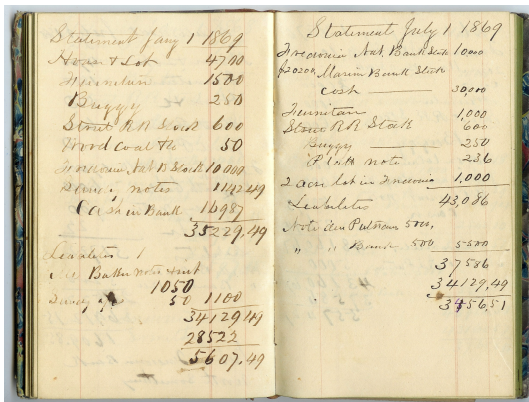 Statement Jany 1 1869
House & Lot 4700
Furniture 1500
Buggy 250
Street RR Stock 600
Wood Coal &c 50
Fredonia Nat B Stock 10000
notes 1142,49
Cash in Bank 16987
35229,49
Leabilities 1
Baker note & int
1050
50 1100
34129,49
28522
5607,49
Statement July 1 1869
Fredonia Nat. Bank Stock 10000
Marin Bank Stock
Cost 30,000
Furniture 1,000
Street RR Stock 600
Buggy 250
note 236
2 acre lot in Fredonia 1,000
Leabilites 43,086
Note Putnam 5000,
" " Bank 500 5500
37586
34129,49
3456,51